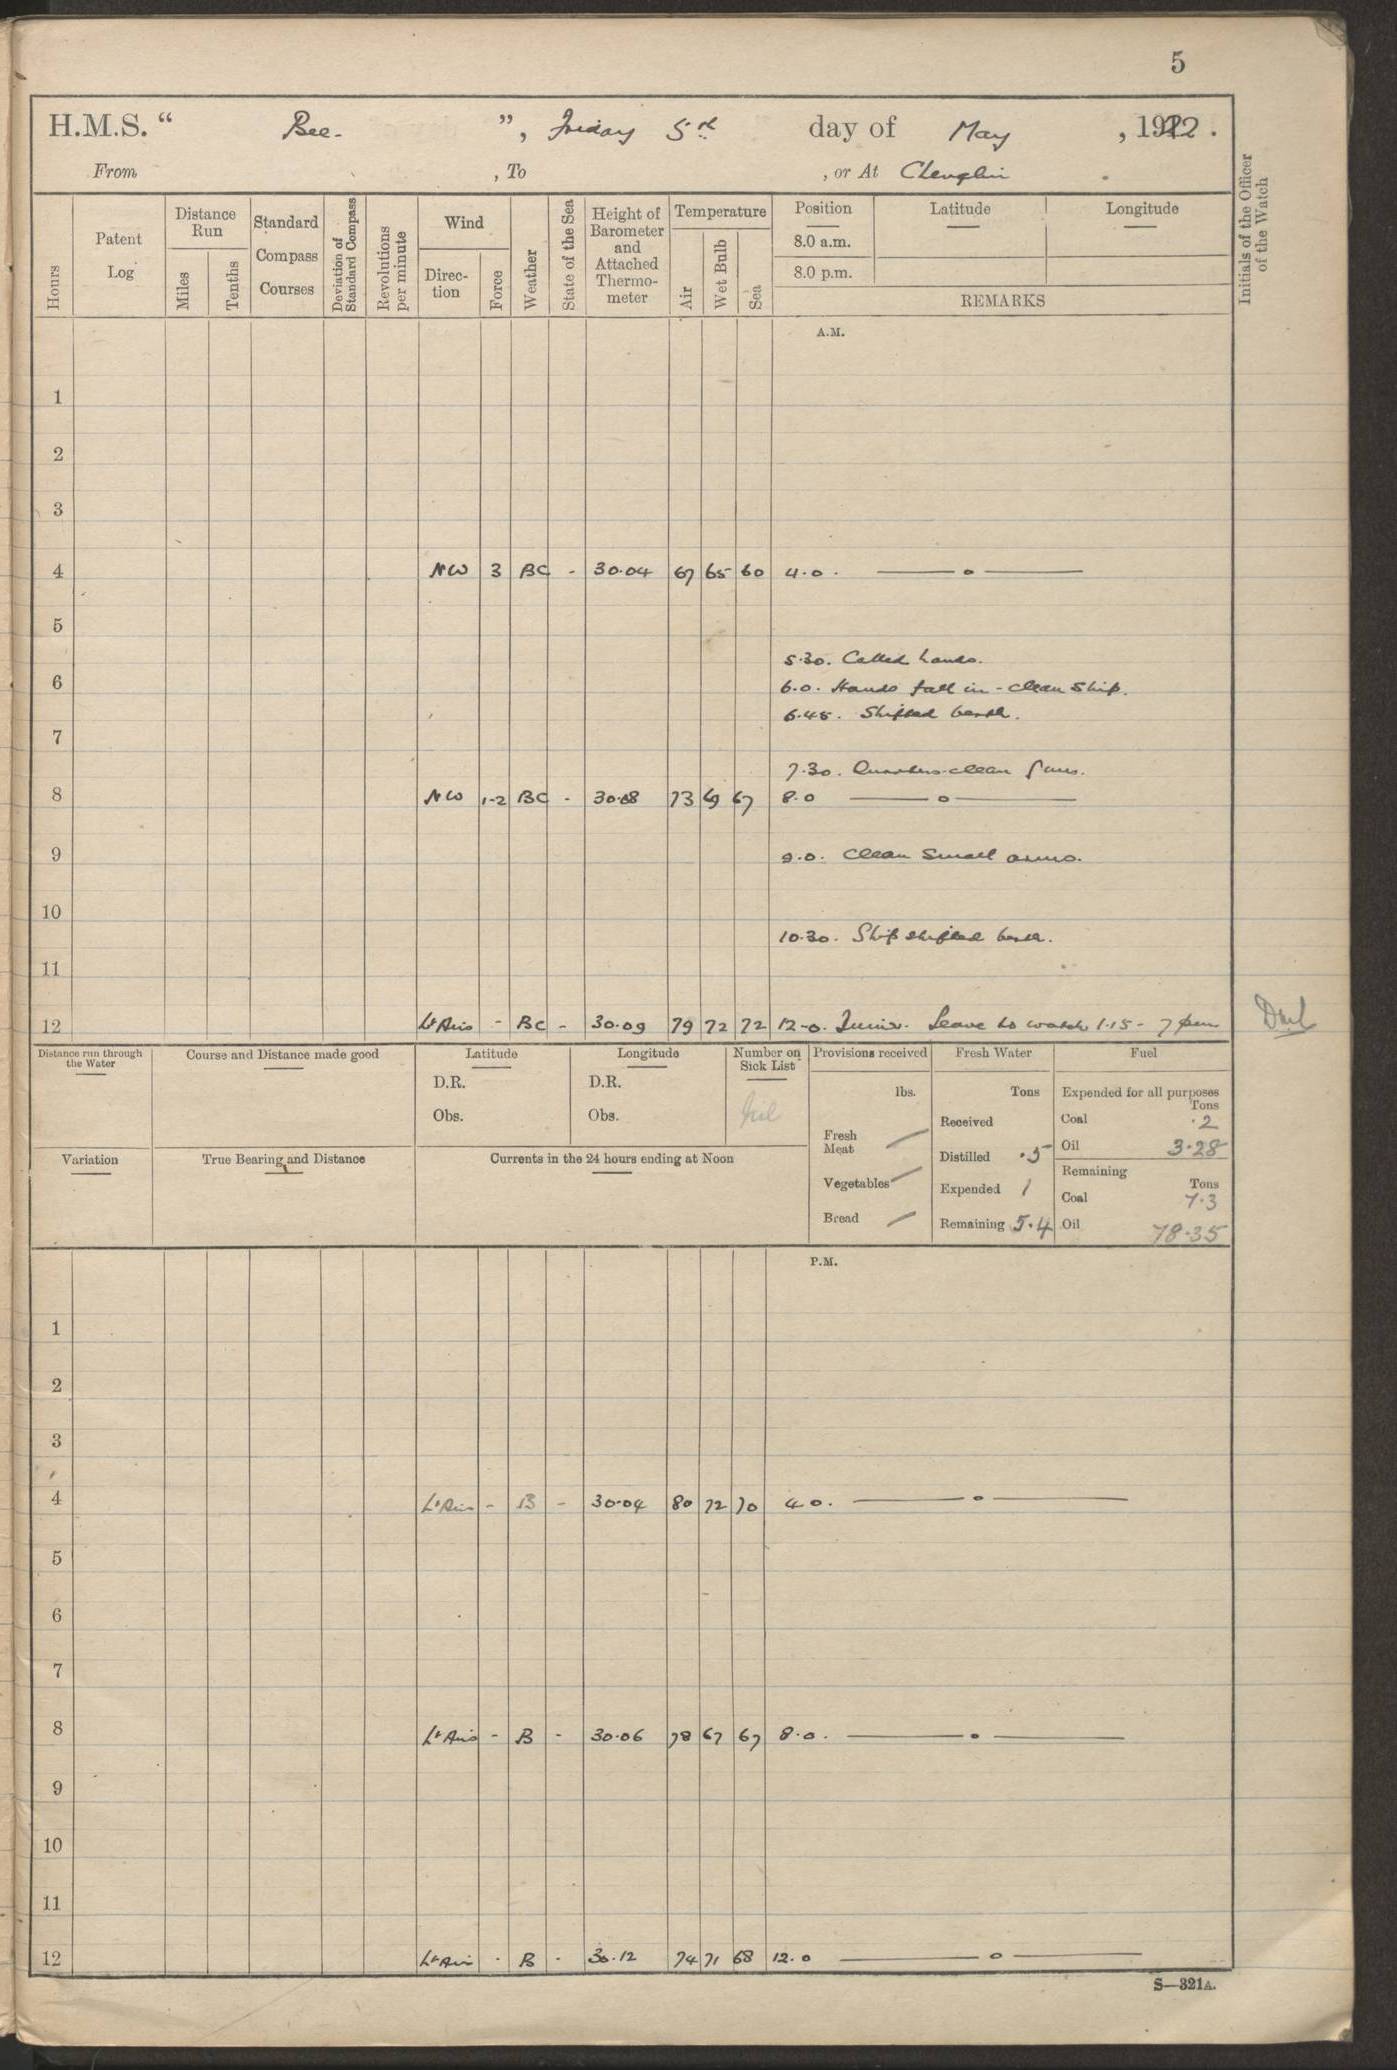 5
H.M.S. " Bee. ", Friday 5th day of May, 1922.
From , To , or At Chenglin
Hours
Patent Log
Distance Run
Miles
Tenths
Standard Compass Courses
Deviation of Standard Compass
Revolutions per minute
Wind
Direction
Force
Weather
State of the Sea
Height of Barometer and Attached Thermometer
Temperature
Air
Wet Bulb
Sea
Position Latitude Longitude
8.0 a.m.
8.0 p.m.
REMARKS
Initials of the Officer of the Watch
A.M.
1
2
3
4 NW 3 BC - 30.04 67 65 60 4.0. —o—
5
5.30. Called hands.
6 6.0. Hands fall in - clean ship.
6.45. Shifted berth.
7
7.30. Quarters clean guns.
8 NW 1-2 BC - 30.08 73 69 67 8.0 —o—
9 9.0. Clean small arms.
10
10.30. Ship shifted berth.
11
12 Lt Airs - BC - 30.09 79 72 72 12-0. Leave to watch 1.15 - 7 pm
Distance run through the Water
Course and Distance made good
Latitude
D.R.
Obs.
Longitude
D.R.
Obs.
Number on Sick List
Nil
Provisions received
lbs.
Fresh Meat /
Vegetables /
Bread /
Fresh Water
Tons
Received
Distilled .5
Expended 1
Remaining 5.4
Fuel
Expended for all purposes
Tons
Coal .2
Oil 3.28
Remaining
Tons
Coal 7.3
Oil 78.35
Variation
True Bearing and Distance
Currents in the 24 hours ending at Noon
P.M.
1
2
3
4 Lt Airs - B - 30.04 80 72 70 4.0. —o—
5
6
7
8 Lt Airs - B - 30.06 78 67 67 8.0. —o—
9
10
11
12 Lt Air - B - 30.12 74 71 68 12.0 —o—
S—321A.